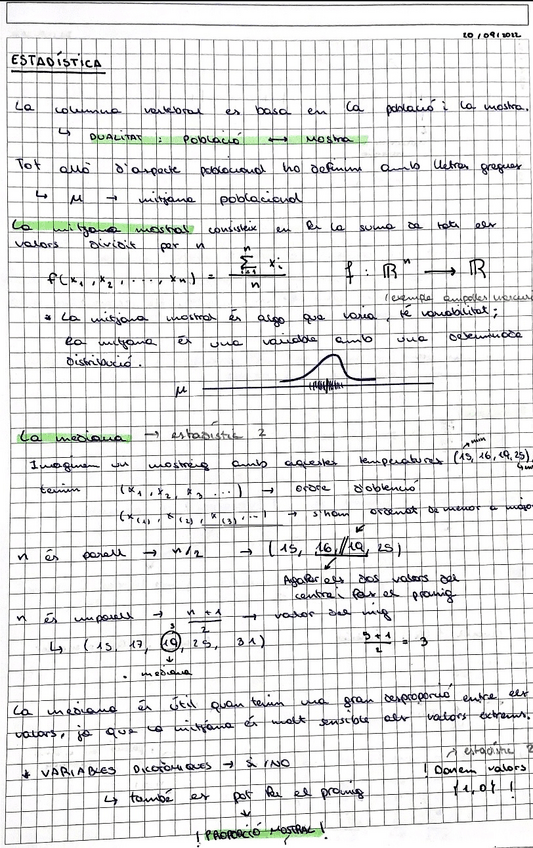 20/09/2022
ESTADÍSTICA
La columna vertebral es basa en la població i la mostra.
↳ DUALITAT : Població ⟷ Mostra
Tot allò d'aspecte poblacional ho definim amb lletres gregues
↳ μ → mitjana poblacional
La mitjana mostral consisteix en fer la suma de tots els
valors dividit per n
f(x₁, x₂, ..., xₙ) = ∑ᵢ₌₁ⁿ xᵢ / n   f : ℝⁿ ⟶ ℝ
(exemple ampolles
* La mitjana mostral és algo que varia, té variabilitat;
la mitjana és una variable amb una
distribució.
μ
La mediana → estadístic 2
Imaginem un mostreig amb aquestes temperatures (15, 16, 19, 25)
min
tenim (x₁, x₂, x₃ ...) → ordre d'obtenció
(x₍₁₎, x₍₂₎, x₍₃₎, ...) → s'han ordenat de menor a major
n és parell → n/2 → (15, 16, // 19, 25)
Agafar els dos valors del
centre i fer el promig
n és imparell → n+1 / 2 → valor del mig
3
↳ (15, 17, 19, 25, 31)   5+1 / 2 = 3
mediana
La mediana és útil quan tenim una gran desproporció entre els
valors, ja que la mitjana és molt sensible als valors extrems.
estadístic 2
* VARIABLES DICOTÒMIQUES → SI/NO   ! Donem valors
↳ també es pot fer el promig   {1,0} !
¡ PROPORCIÓ MOSTRAL !